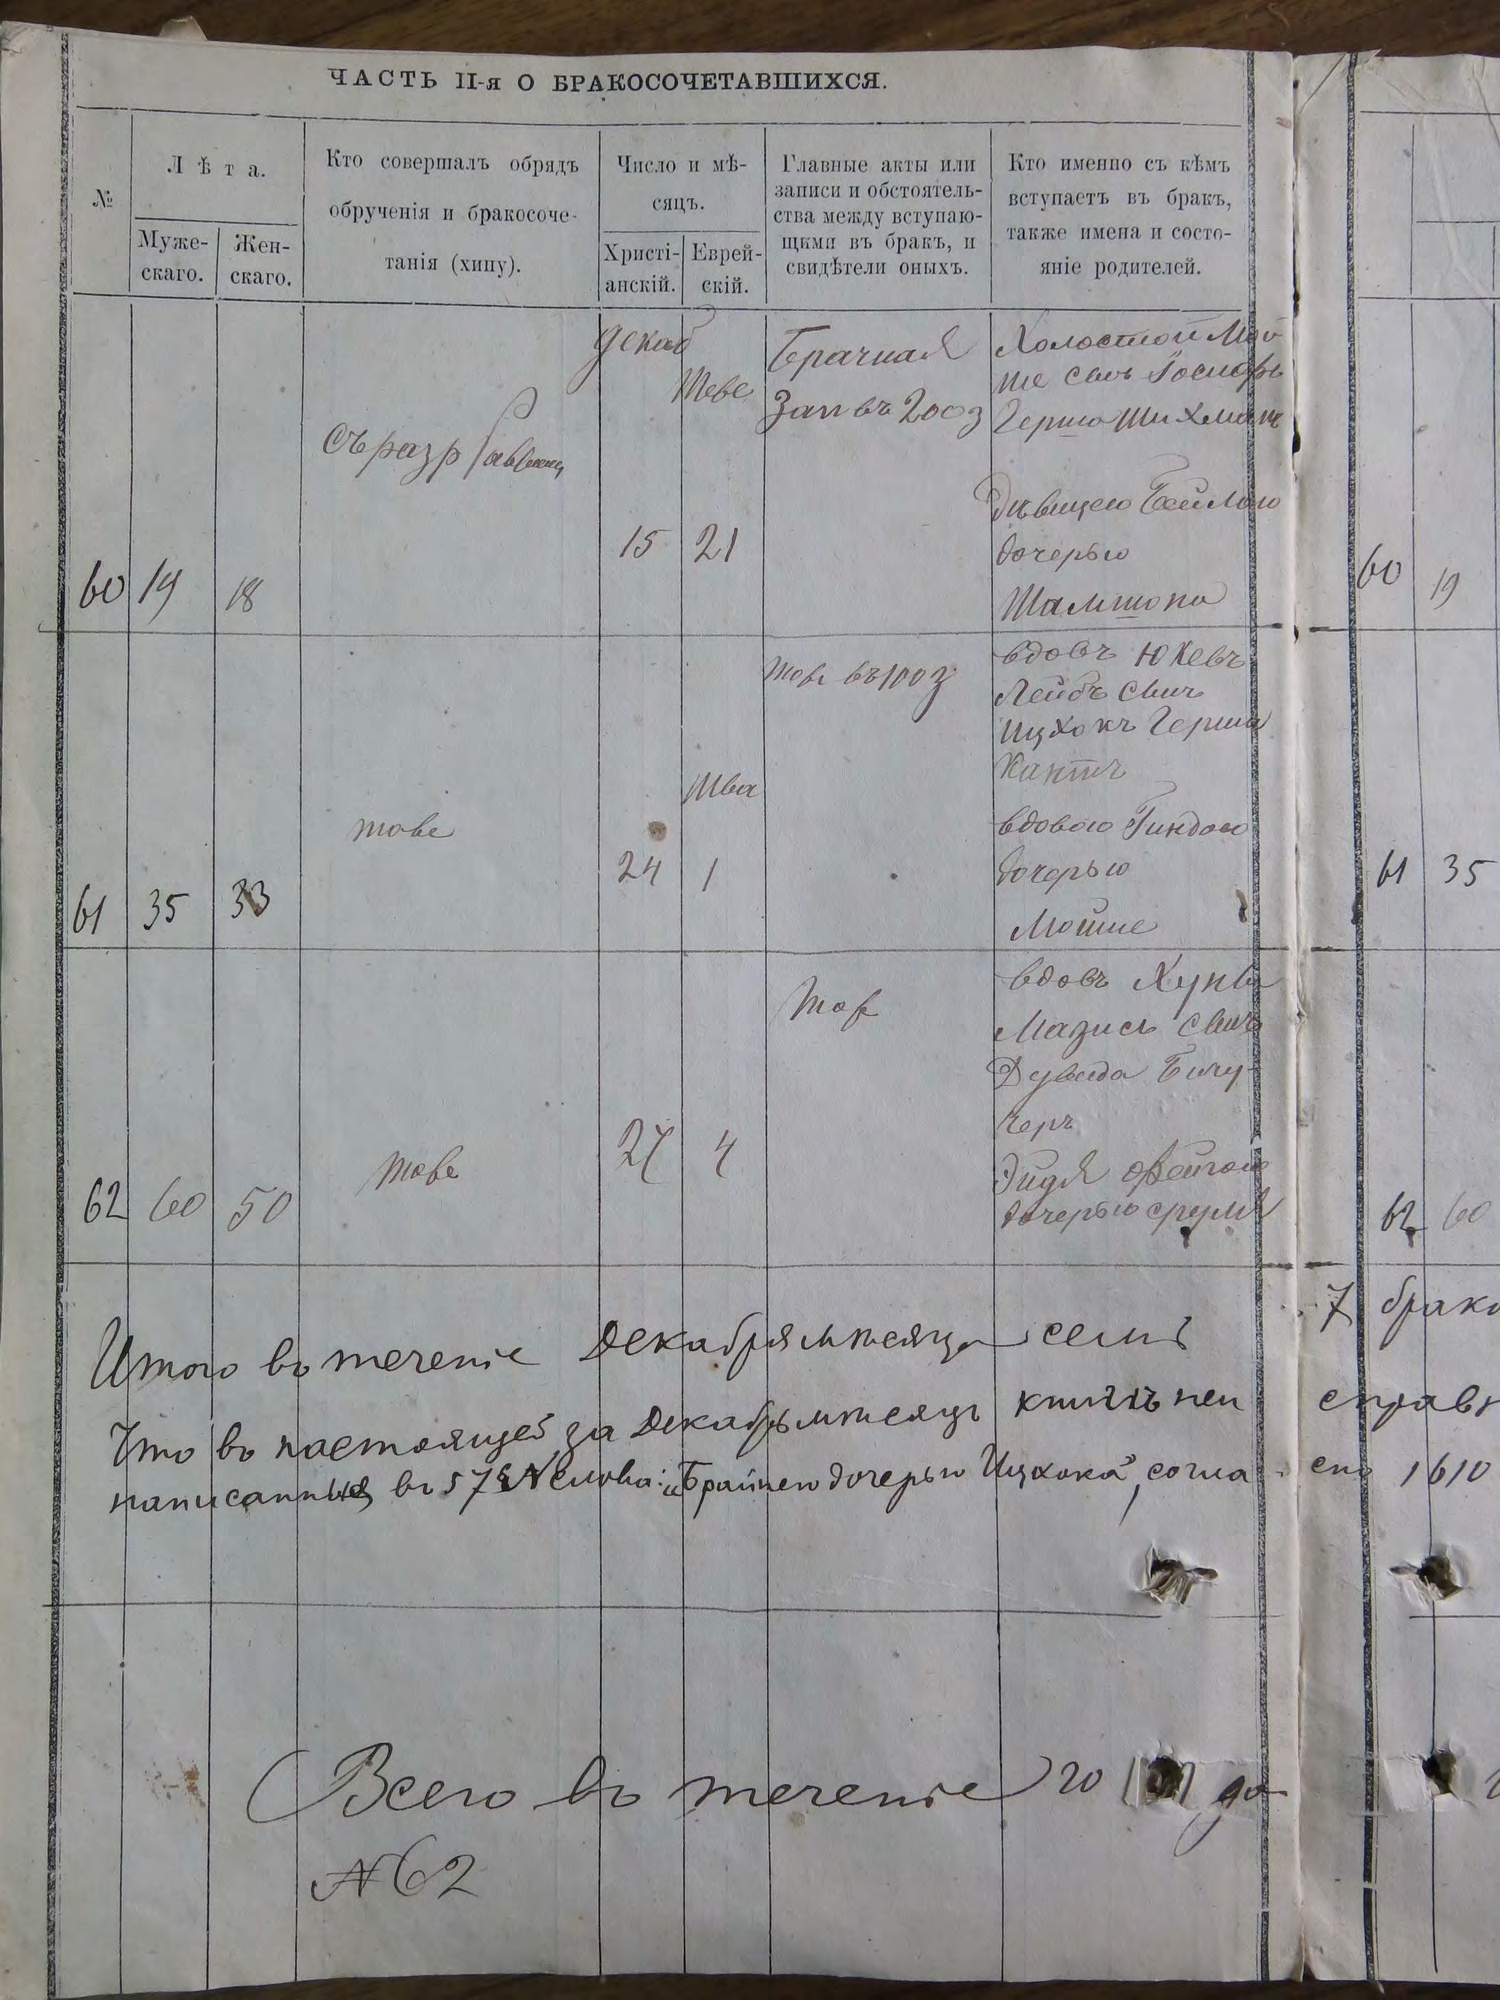 ЧАСТЬ II-я О БРАКОСОЧЕТАВШИХСЯ.
№
Лѣта.
Муже-
скаго.
Жен-
скаго.
Кто совершалъ обрядъ
обрученія и бракосоче-
танія (хипу).
Число и мѣ-
сяцъ.
Христі-
анскій.
Еврей-
скій.
Главные акты или
записи и обстоятель-
ства между вступаю-
щими въ бракъ, и
свидѣтели оныхъ.
Кто именно съ кѣмъ
вступаетъ въ бракъ,
также имена и состо-
яніе родителей.
60
19
18
съ разр
декаб
15
Теве
21
Брачная
Зап въ 200 з
Холостой Мой
ше сынъ
Герша Шихманъ
Дѣвицею Бейлою
дочерью
Шамшона
60
19
61
35
33
тове
24
Шва
1
тове въ 100 з
вдовъ Юкевъ
Лейбъ сынъ
Ицхокъ Герша
Кантъ
вдовою Гиндою
дочерью
Мойше
61
35
62
60
50
тове
27
4
тов
вдовъ
сынъ
Дувида
черъ
Фейгою
дочерью
62
60
Итого въ теченіе Декабря мѣсяца семь
7 брако
Что въ настоящей за Декабрь мѣсяцъ книгѣ неи
справн
написанныя въ 57 № слова: „Брайнею дочерью Ицхока", согла
сно 1610
Всего въ теченіе го да
№ 62